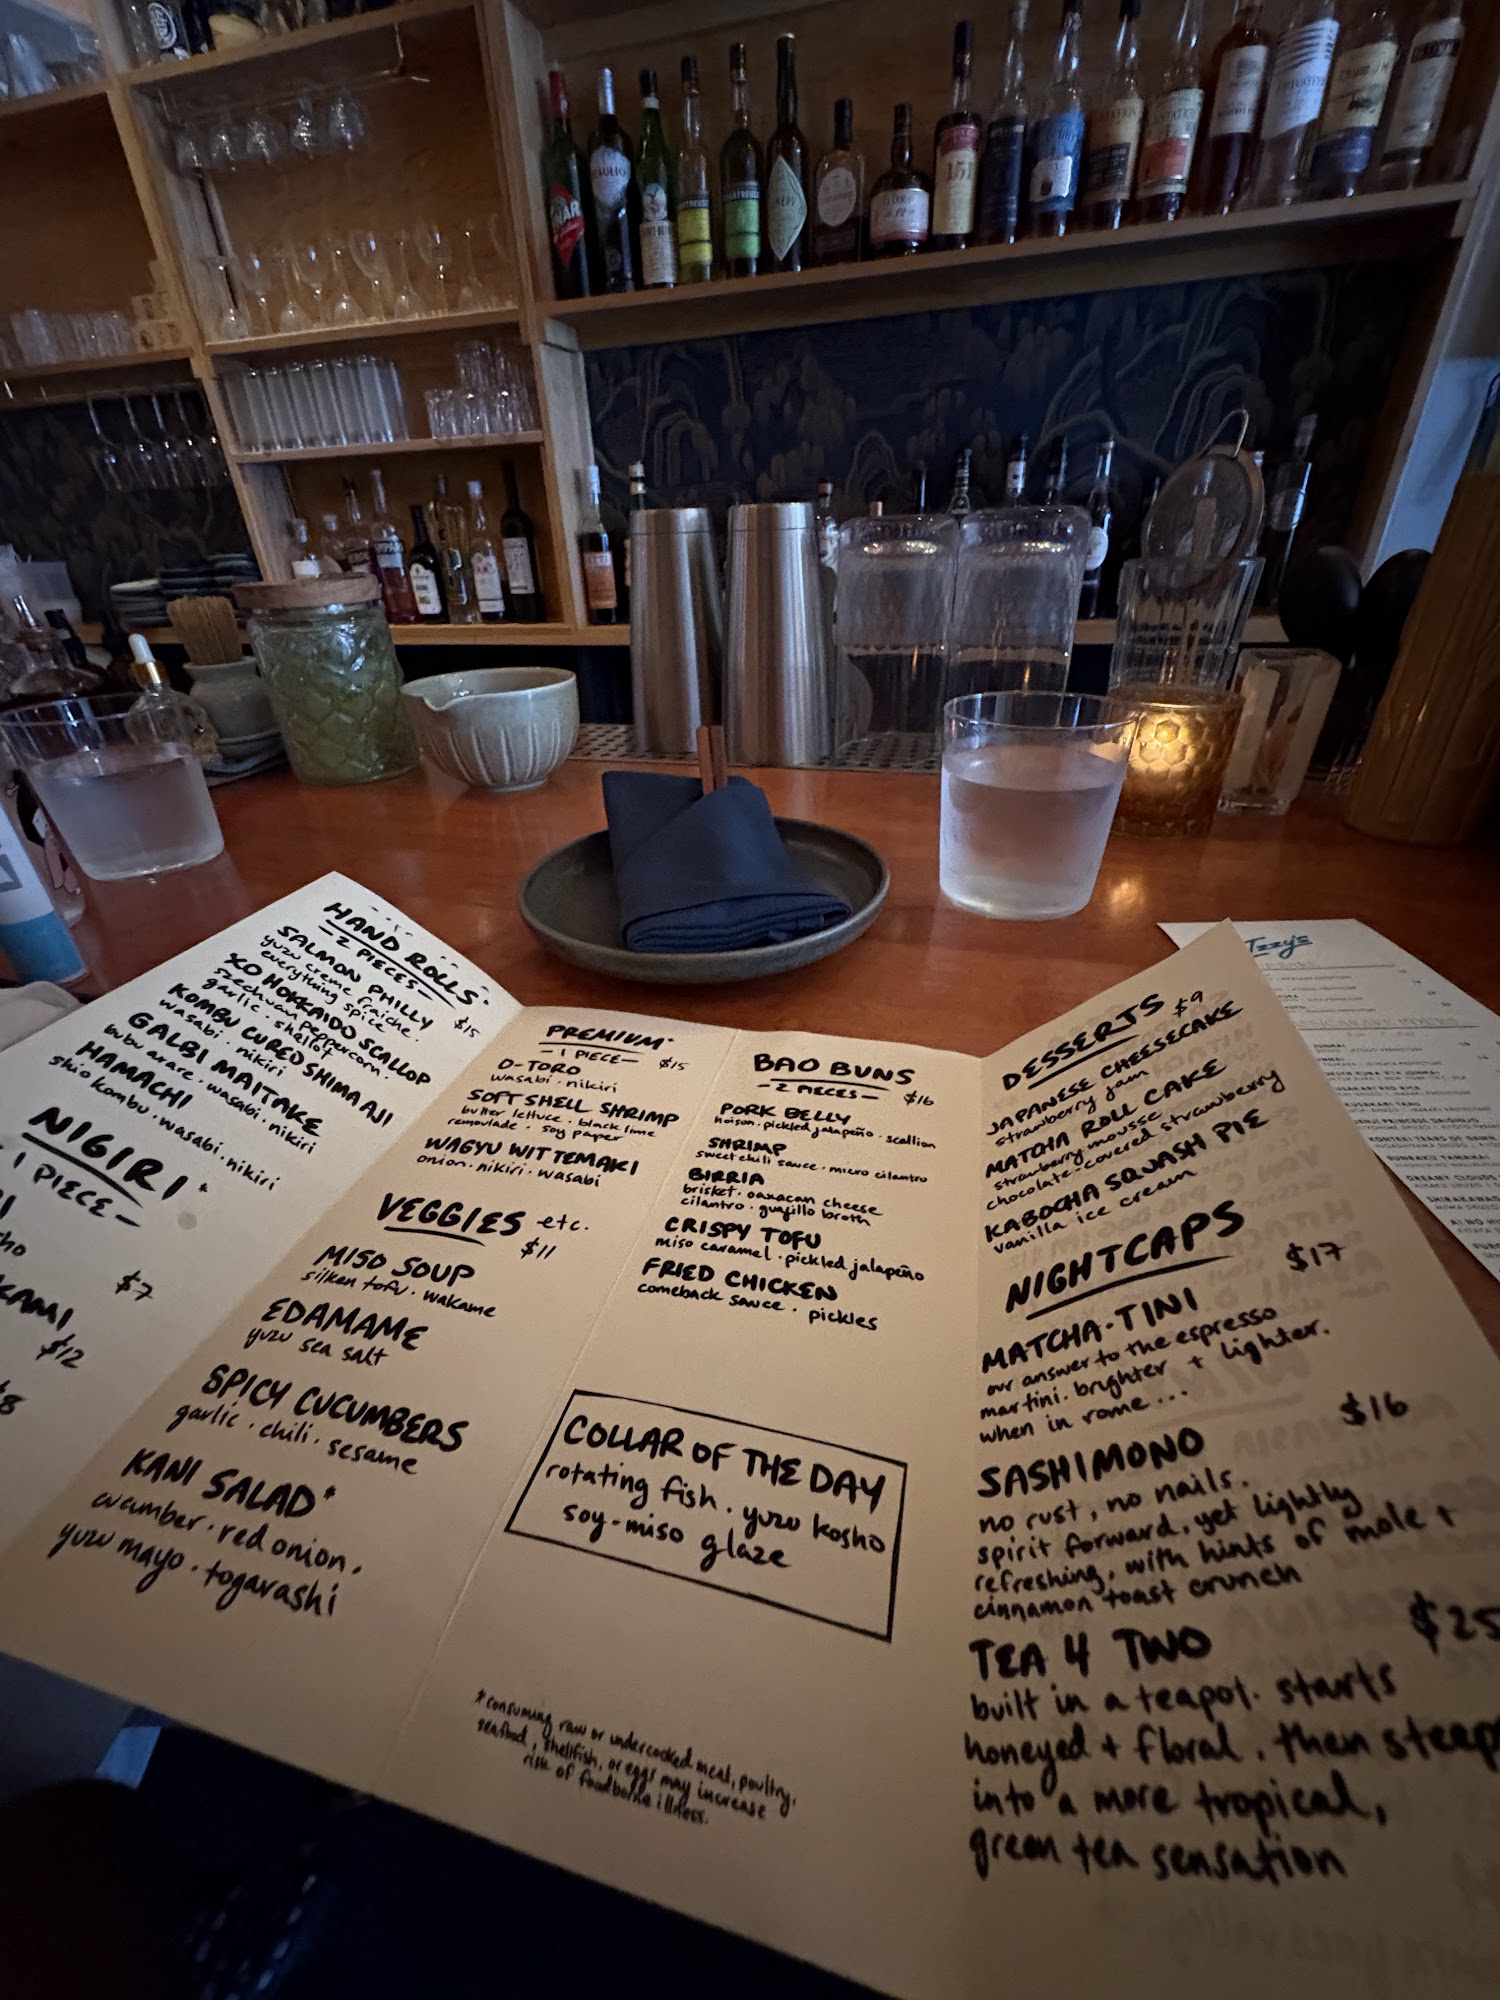 HAND ROLLS*
-2 PIECES-
$15
SALMON PHILLY
yuzu creme fraiche.
everything spice
XO HOKKAIDO SCALLOP
szechuan peppercorn.
garlic. shallot
KOMBU CURED SHIMA AJI
wasabi. nikiri
GALBI MAITAKE
bubu arare. wasabi. nikiri
HAMACHI
shio kombu. wasabi. nikiri
NIGIRI*
1 PIECE-
$7
$12
PREMIUM*
-1 PIECE-
$15
O-TORO
wasabi. nikiri
SOFT SHELL SHRIMP
butter lettuce. black lime
remoulade. soy paper
WAGYU WITTEMAKI
onion. nikiri. wasabi
VEGGIES etc.
$11
MISO SOUP
silken tofu. wakame
EDAMAME
yuzu sea salt
SPICY CUCUMBERS
garlic. chili. sesame
KANI SALAD*
cucumber. red onion.
yuzu mayo. togarashi
BAO BUNS
-2 PIECES-
$16
PORK BELLY
hoison. pickled jalapeño. scallion
SHRIMP
sweet chili sauce. micro cilantro
BIRRIA
brisket. oaxacan cheese
cilantro. guajillo broth
CRISPY TOFU
miso caramel. pickled jalapeño
FRIED CHICKEN
comeback sauce. pickles
COLLAR OF THE DAY
rotating fish. yuzu kosho
soy-miso glaze
*consuming raw or undercooked meat, poultry,
seafood, shellfish, or eggs may increase
risk of foodborne illness.
DESSERTS
$9
JAPANESE CHEESECAKE
strawberry jam
MATCHA ROLL CAKE
strawberry mousse
chocolate-covered strawberry
KABOCHA SQUASH PIE
vanilla ice cream
NIGHTCAPS
$17
MATCHA-TINI
our answer to the espresso
martini. brighter + lighter.
when in rome...
$16
SASHIMONO
no rust, no nails.
spirit forward, yet lightly
refreshing, with hints of mole +
cinnamon toast crunch
$25
TEA 4 TWO
built in a teapot. starts
honeyed + floral. then steeps
into a more tropical,
green tea sensation
Izzy's
151